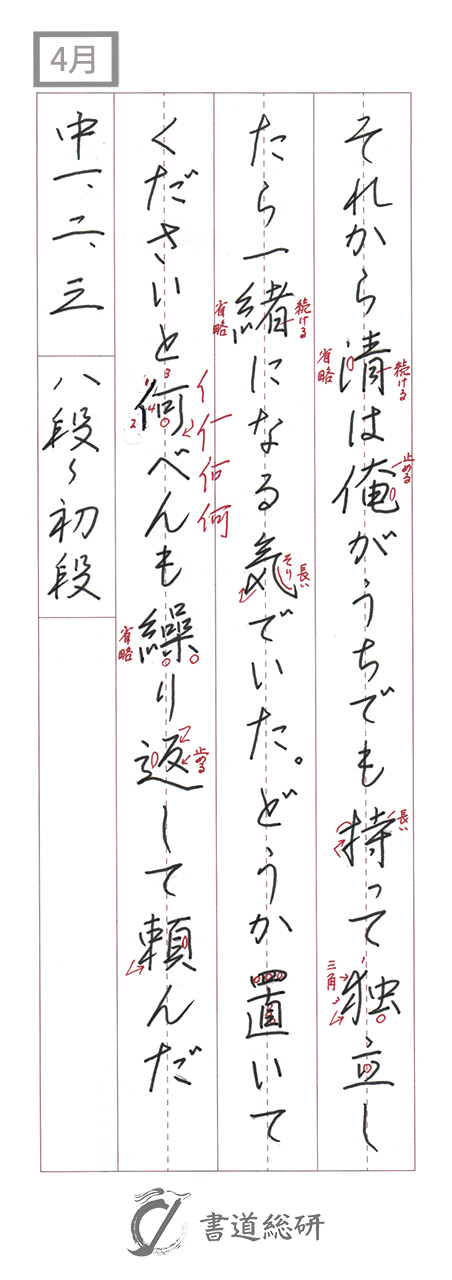 4月
それから清は俺がうちでも持って独立し
たら一緒になる気でいた。どうか置いて
くださいと何べんも繰り返して頼んだ
中一、二、三
八段〜初段
続ける
省略
止める
長い
三角
続ける
省略
長い
そり
イ
仁
佑
何
省略
止める
書道総研